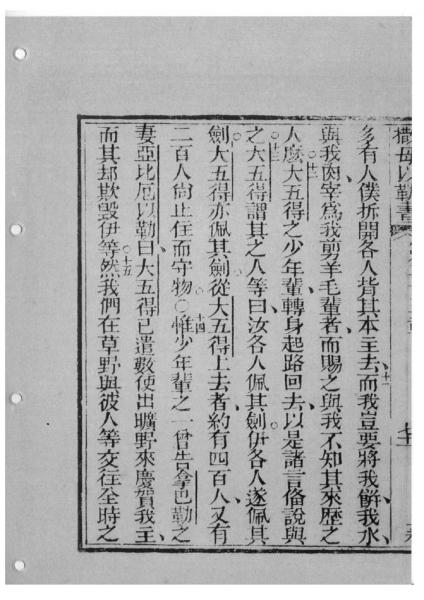 多有人僕拆開各人背其本主去、十一而我豈要將我餅我水、
與我肉宰爲我剪羊毛輩者、而賜之與我不知其來歷之
人麽○十二大五得之少年輩轉身起路回去、以是諸言俻說與
之○十三大五得謂其之人等曰、汝各人佩其劍○伊各人遂佩其
劍○大五得亦佩其劍○從大五得上去者、約有四百人、又有
二百人尚止住而守物○○十四惟少年輩之一曾告拿也勒之
妻亞比厄以勒曰大五得已遣數使出曠野來慶賀我主、
而其却欺毀伊等○十五然我們在草野與彼人等交往全時之